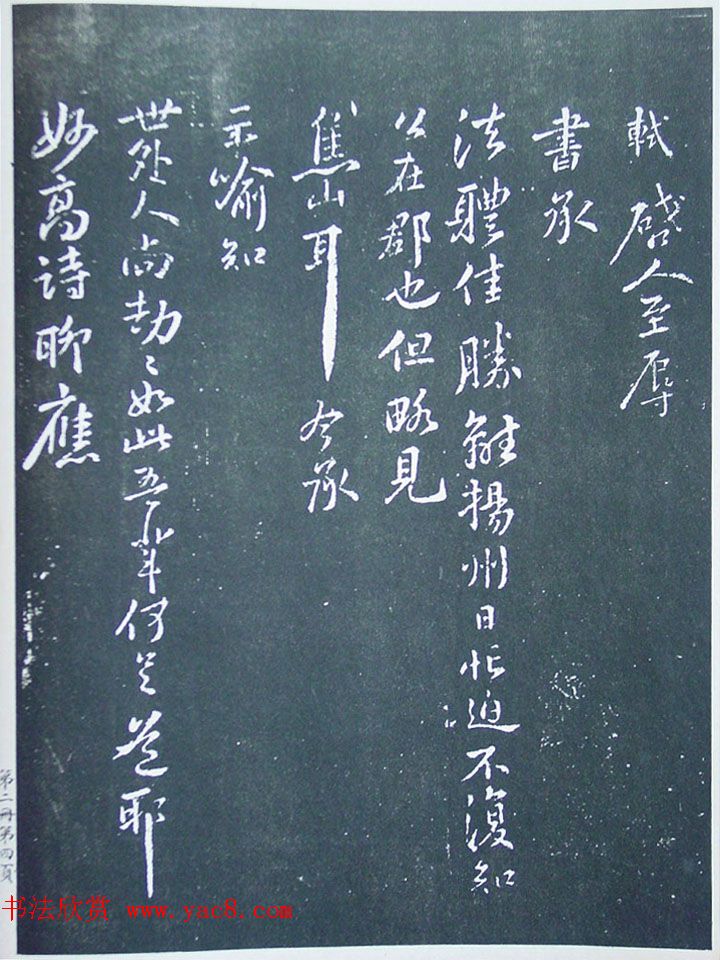 軾啓人至辱
書承
法體佳勝離揚州日忙迫不復知
公在郡也但略見
焦山耳今承
示喻知
世外人尚劫々如此吾輩何足道耶
妙高詩聊應
第二冊第四頁
书法欣赏 www.yac8.com